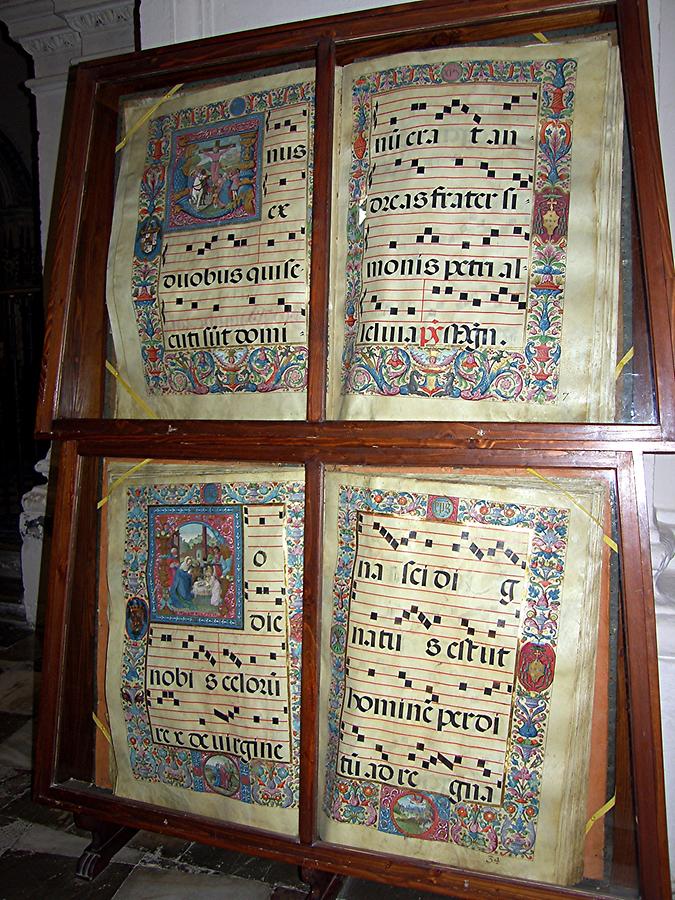 nus
ex
duobus quise
cuti sūt domi
nū era t an
dreas frater si
monis petri al
leluia
7
o
die
nobi s celorū
re x de uirgine
na sci di g
natu s est ut
hominē perdi
tū ad re gna
34